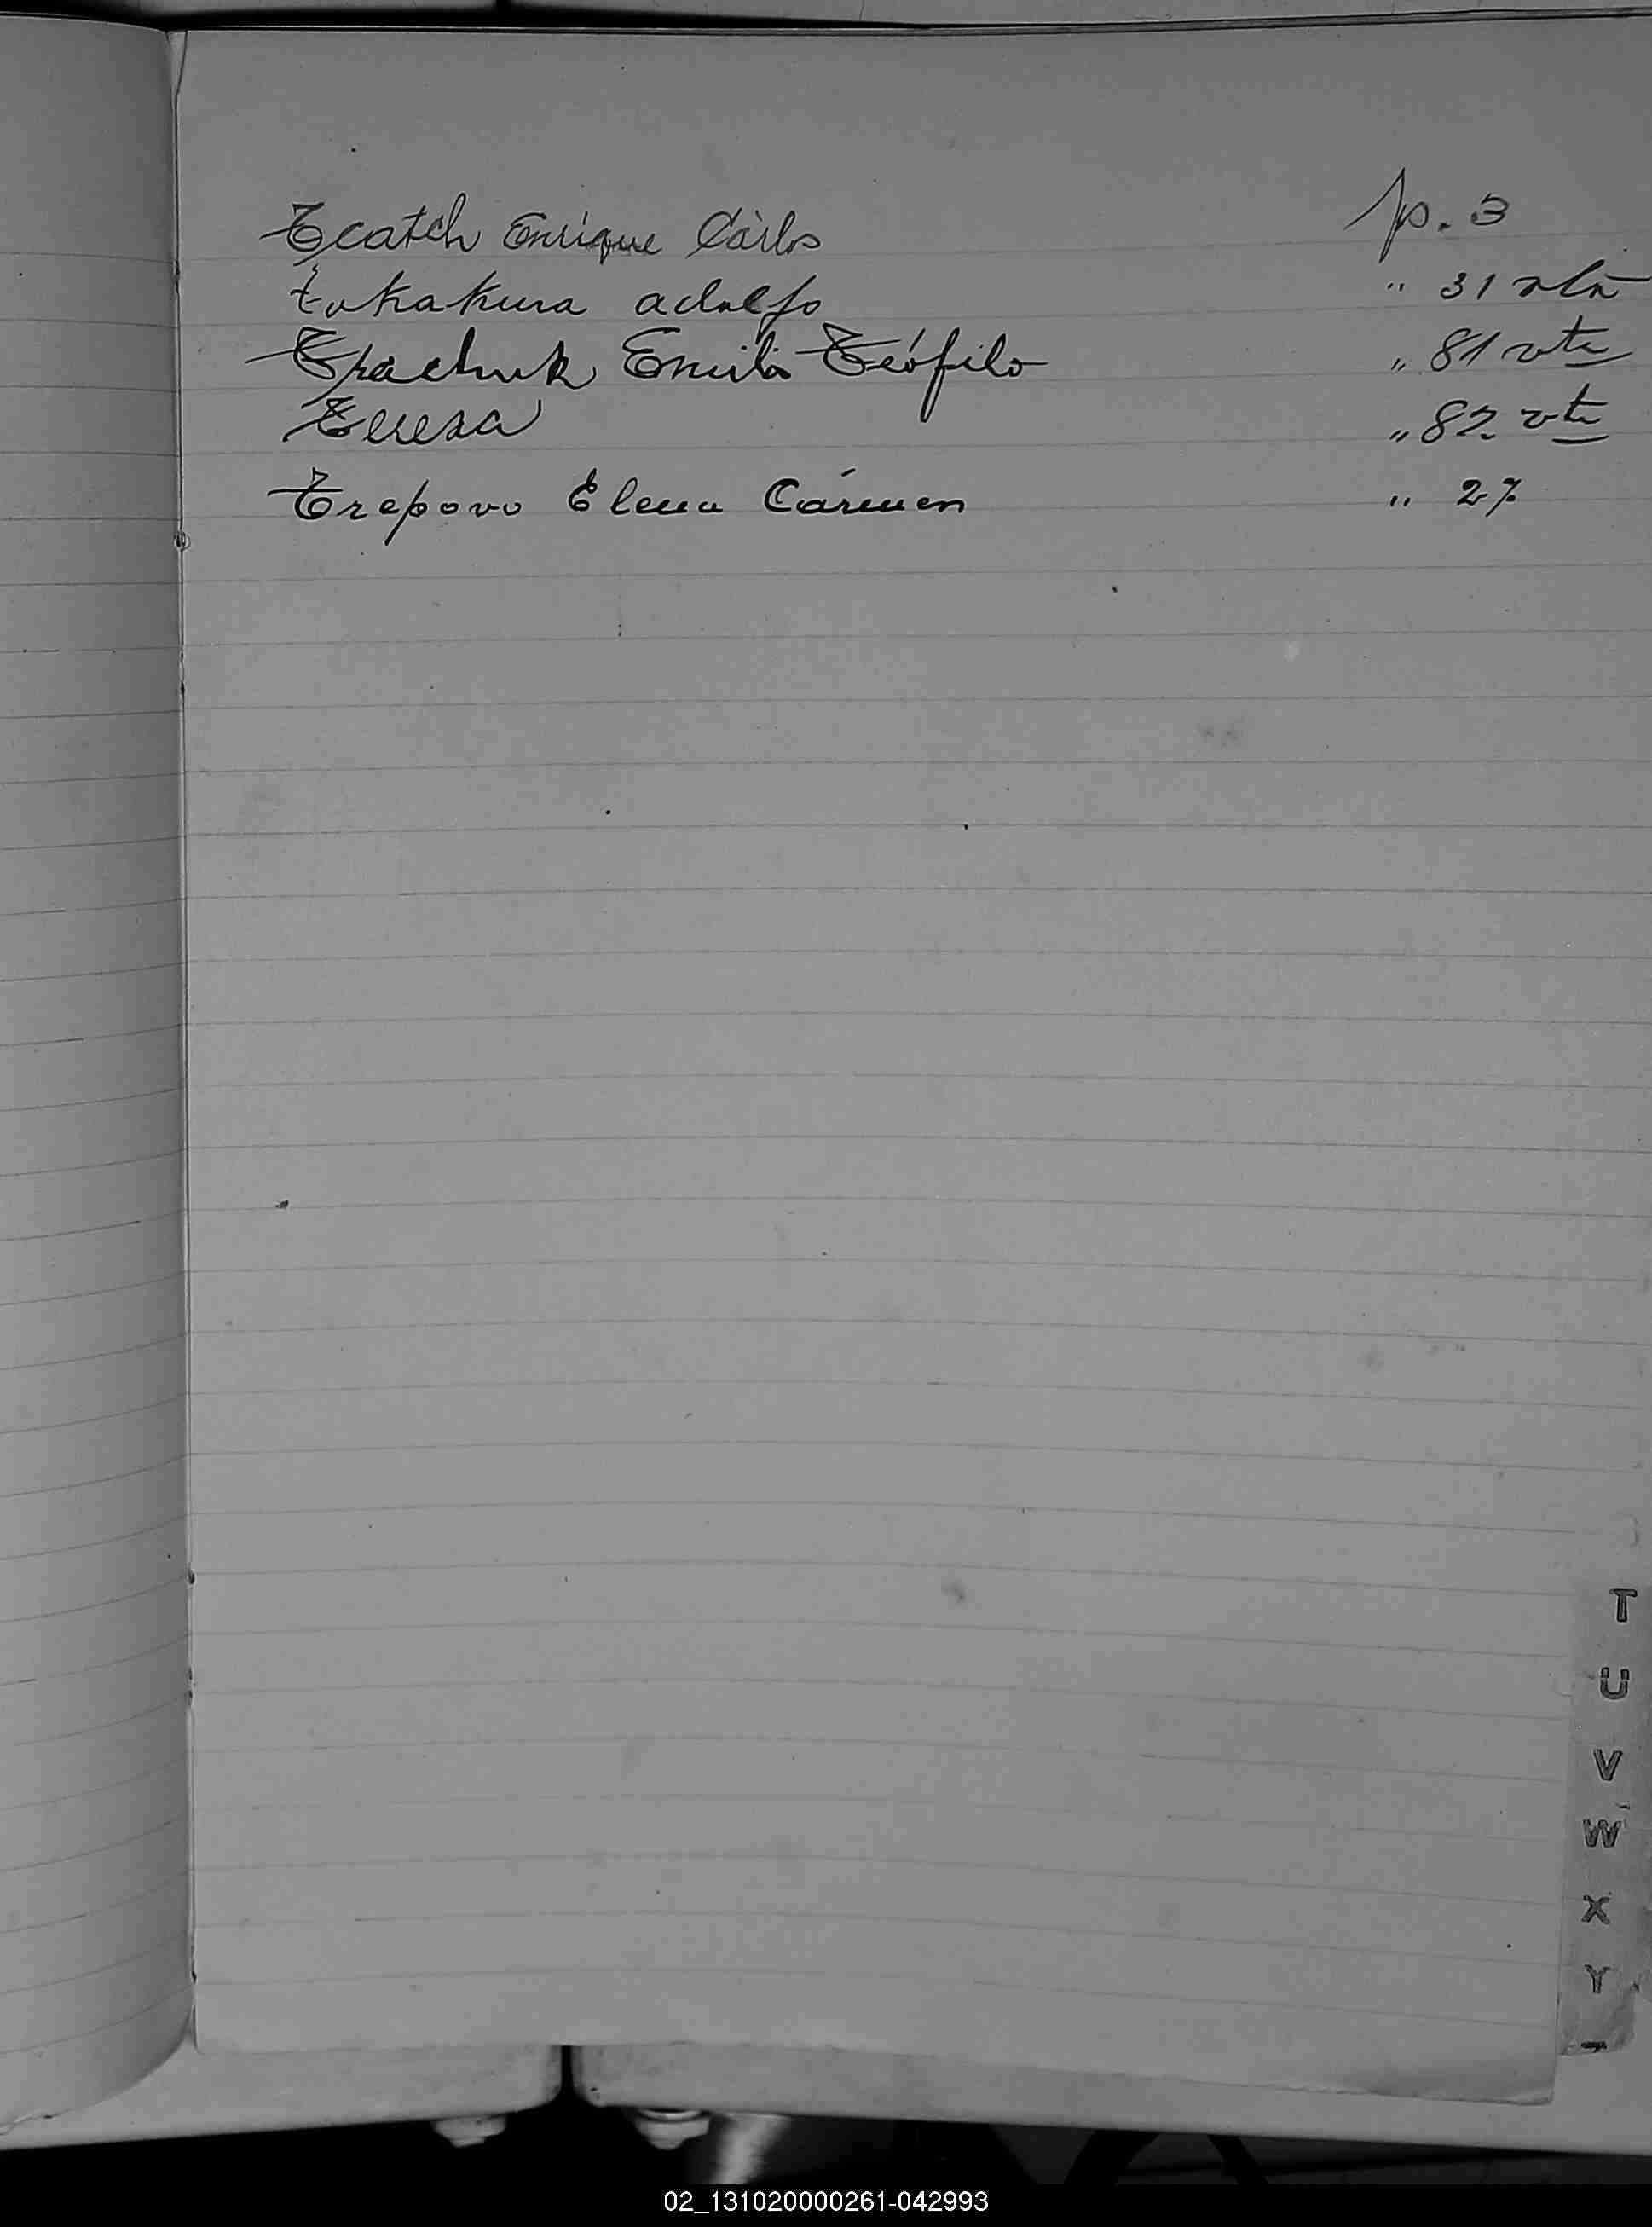 Tcatch Enrique Cárlos p. 3
tokakura adolfo " 31 vta
Trachuk Emilio Teófilo " 81 vta
Teresa " 82 vta
Trepovo Elena Cármen " 27
T
U
V
W
X
Y
02_131020000261-042993